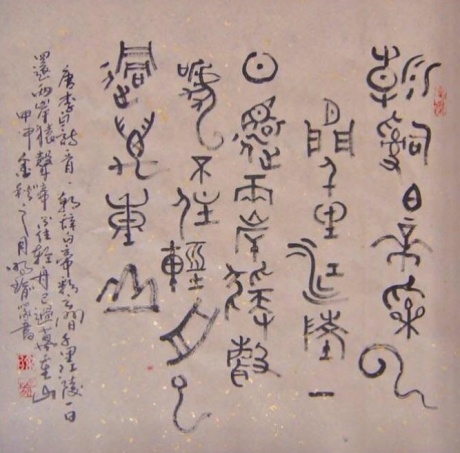 朝辭白帝彩云
間千里江陵一
日還兩岸猿聲
啼不住輕舟已
過萬重山
唐李白詩首朝辭白帝彩雲間千里江陵一日
還兩岸猿聲啼不住輕舟已過萬重山
甲申金秋之月